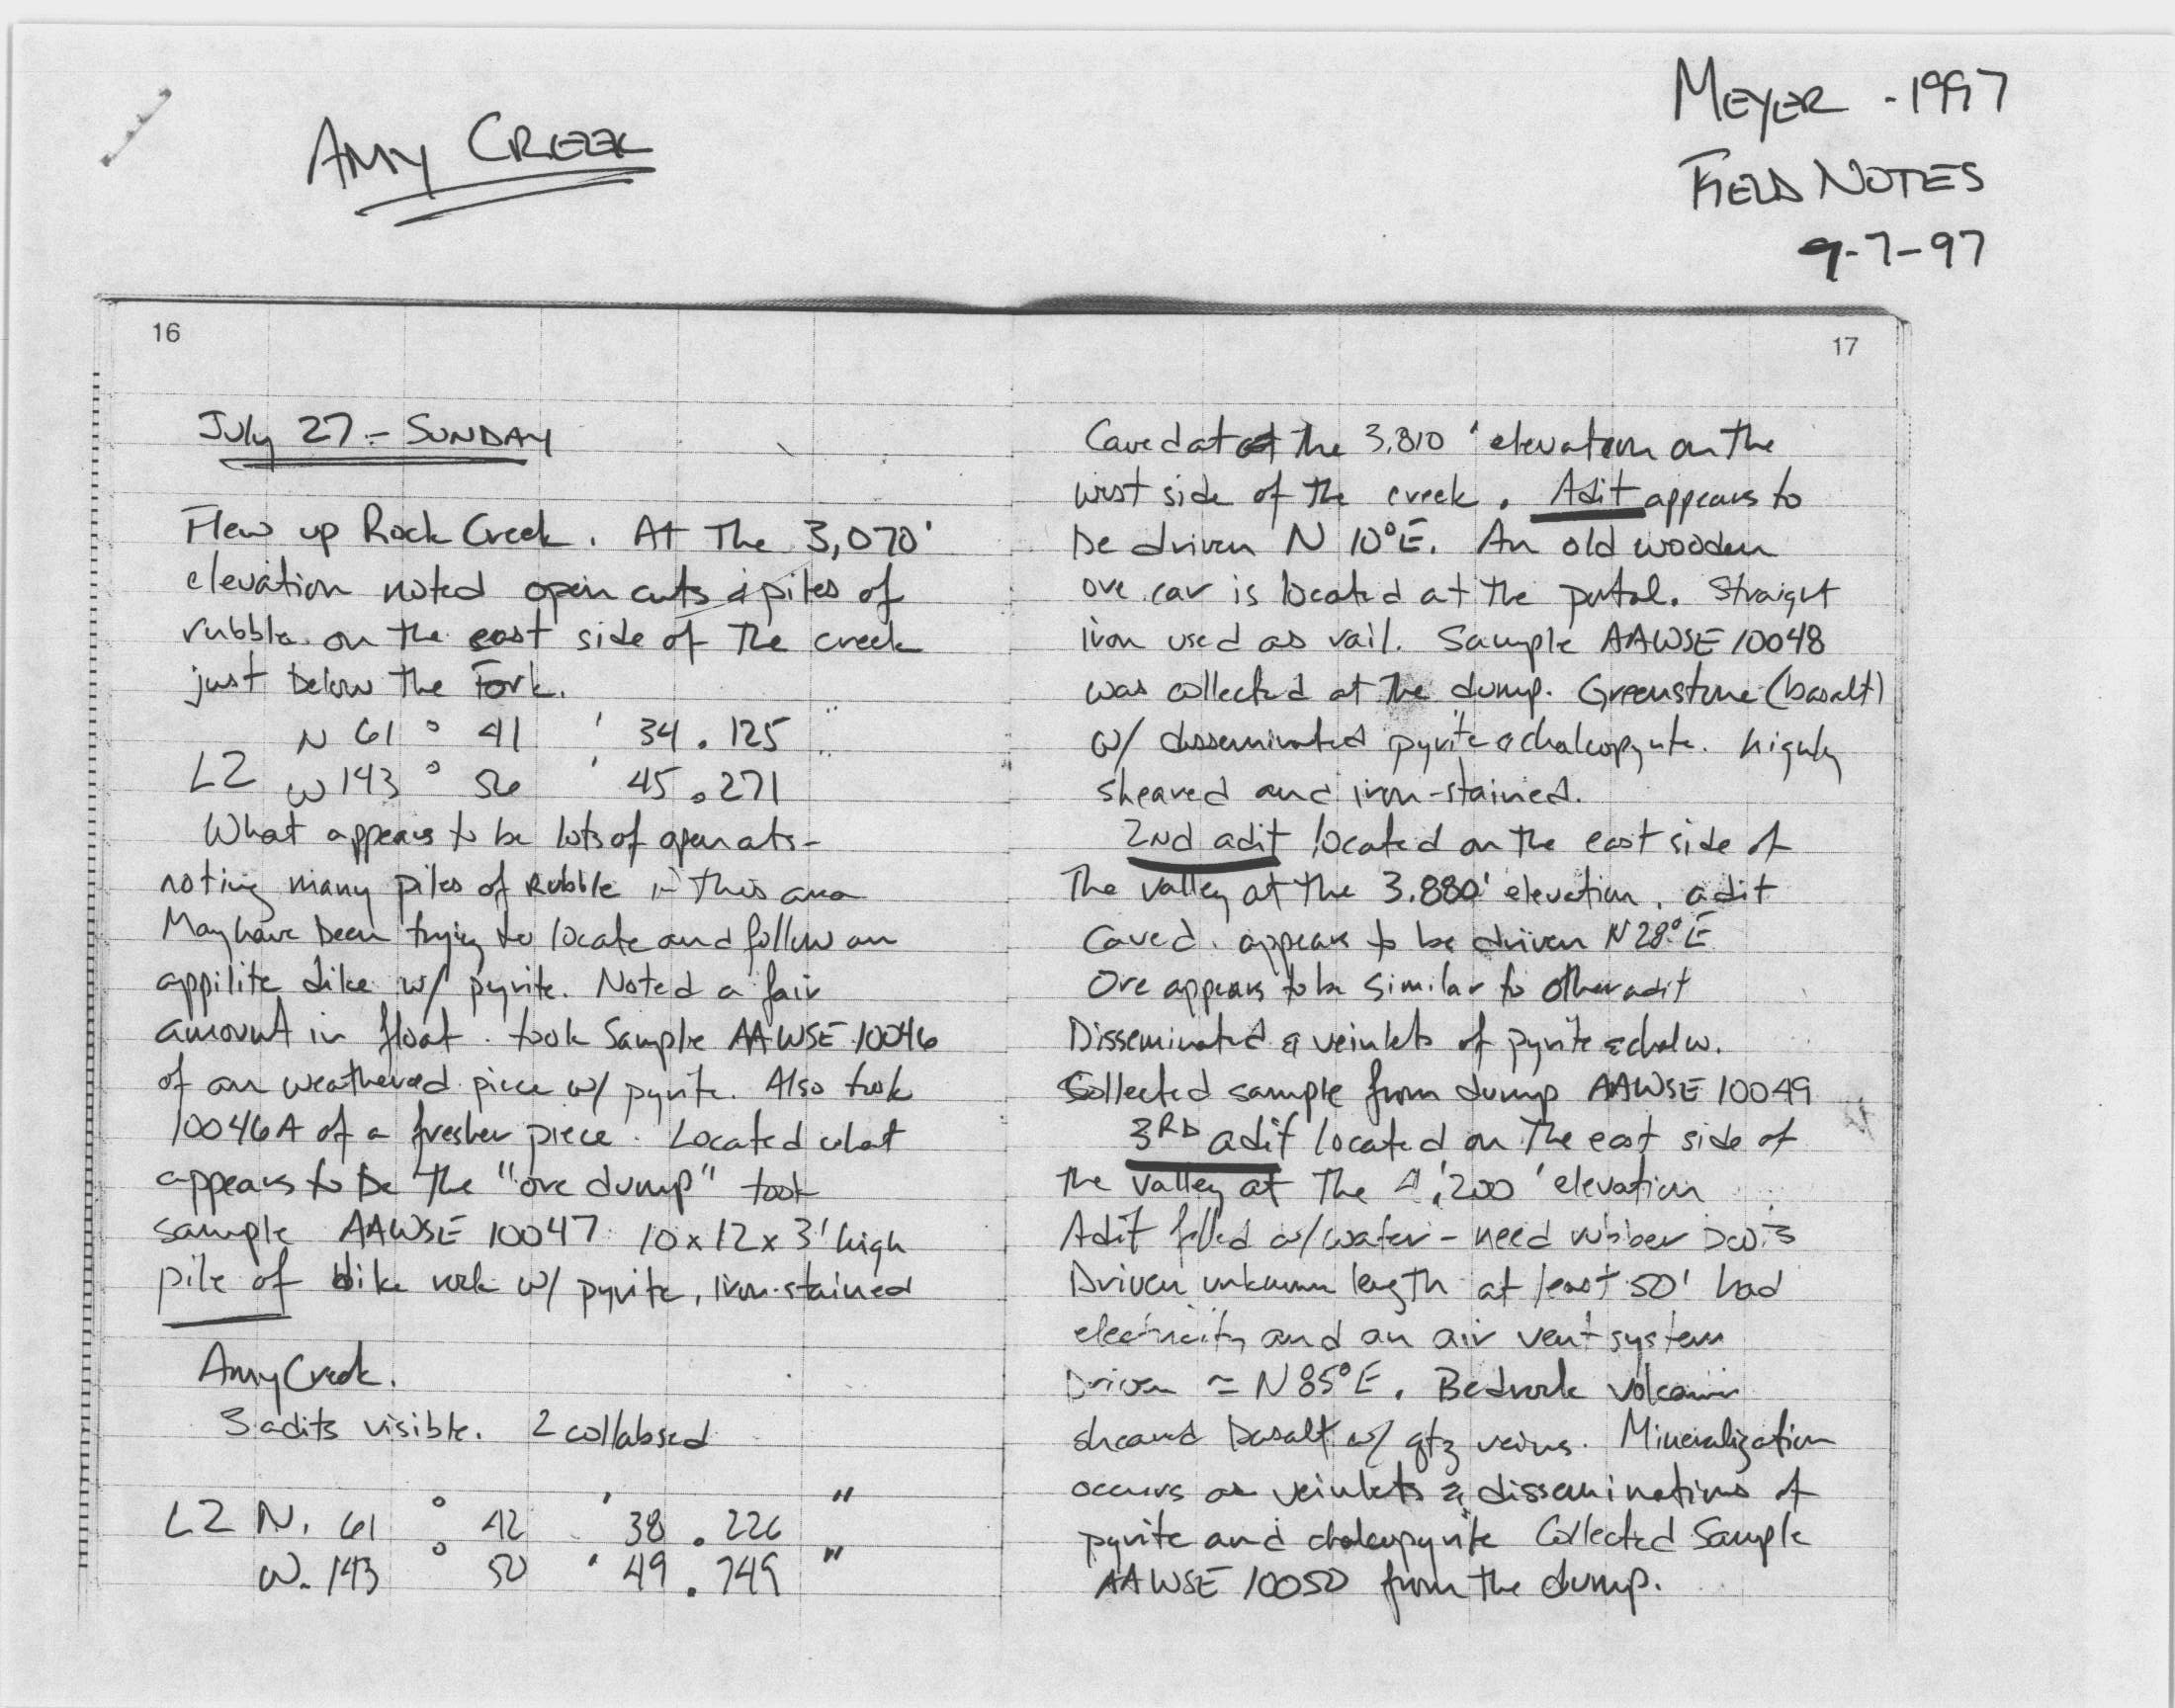 AMY CREEK
MEYER - 1997
FIELD NOTES
9-7-97
16
July 27 - SUNDAY
Flew up Rock Creek. At The 3,070'
elevation noted open cuts & piles of
rubble on the east side of The creek
just below the Fork.
N 61 ° 41 ' 34 . 125 "
L2 W 143 ° 56 ' 45 . 271
What appears to be lots of open cuts -
noting many piles of Rubble in this area
May have been trying to locate and follow an
appilite dike w/ pyrite. Noted a fair
amount in float. took Sample AAWSE 10046
of an weathered piece w/ pyrite. Also took
10046A of a fresher piece. Located what
appears to be the "ore dump" took
sample AAWSE 10047 10 x 12 x 3' high
pile of dike rock w/ pyrite, iron-stained
Amy Creek.
3 adits visible. 2 collabsed
L2 N. 61 ° 42 ' 38 . 226 "
W. 143 ° 50 ' 49 . 749 "
17
Caved at the 3,810 ' elevation on the
west side of the creek. Adit appears to
be driven N 10°E. An old wooden
ore car is located at the portal. Straight
iron used as rail. Sample AAWSE 10048
was collected at the dump. Greenstone (basalt)
w/ disseminated pyrite & chalcopyrite. highly
sheared and iron-stained.
2nd adit located on the east side of
The valley at the 3,880' elevation. adit
Caved. appears to be driven N 28° E
Ore appears to be similar to other adit
Disseminated & veinlets of pyrite & chalco.
Collected sample from dump AAWSE 10049
3RD adit located on The east side of
the valley at The 4,200 ' elevation
Adit filled w/ water - need rubber
Driven unknown length at least 50' had
electricity and an air vent system
Driven ≈ N 85°E. Bedrock volcanic
sheared basalt w/ qtz veins. Mineralization
occurs as veinlets & disseminations of
pyrite and chalcopyrite Collected Sample
AAWSE 10050 from the dump.